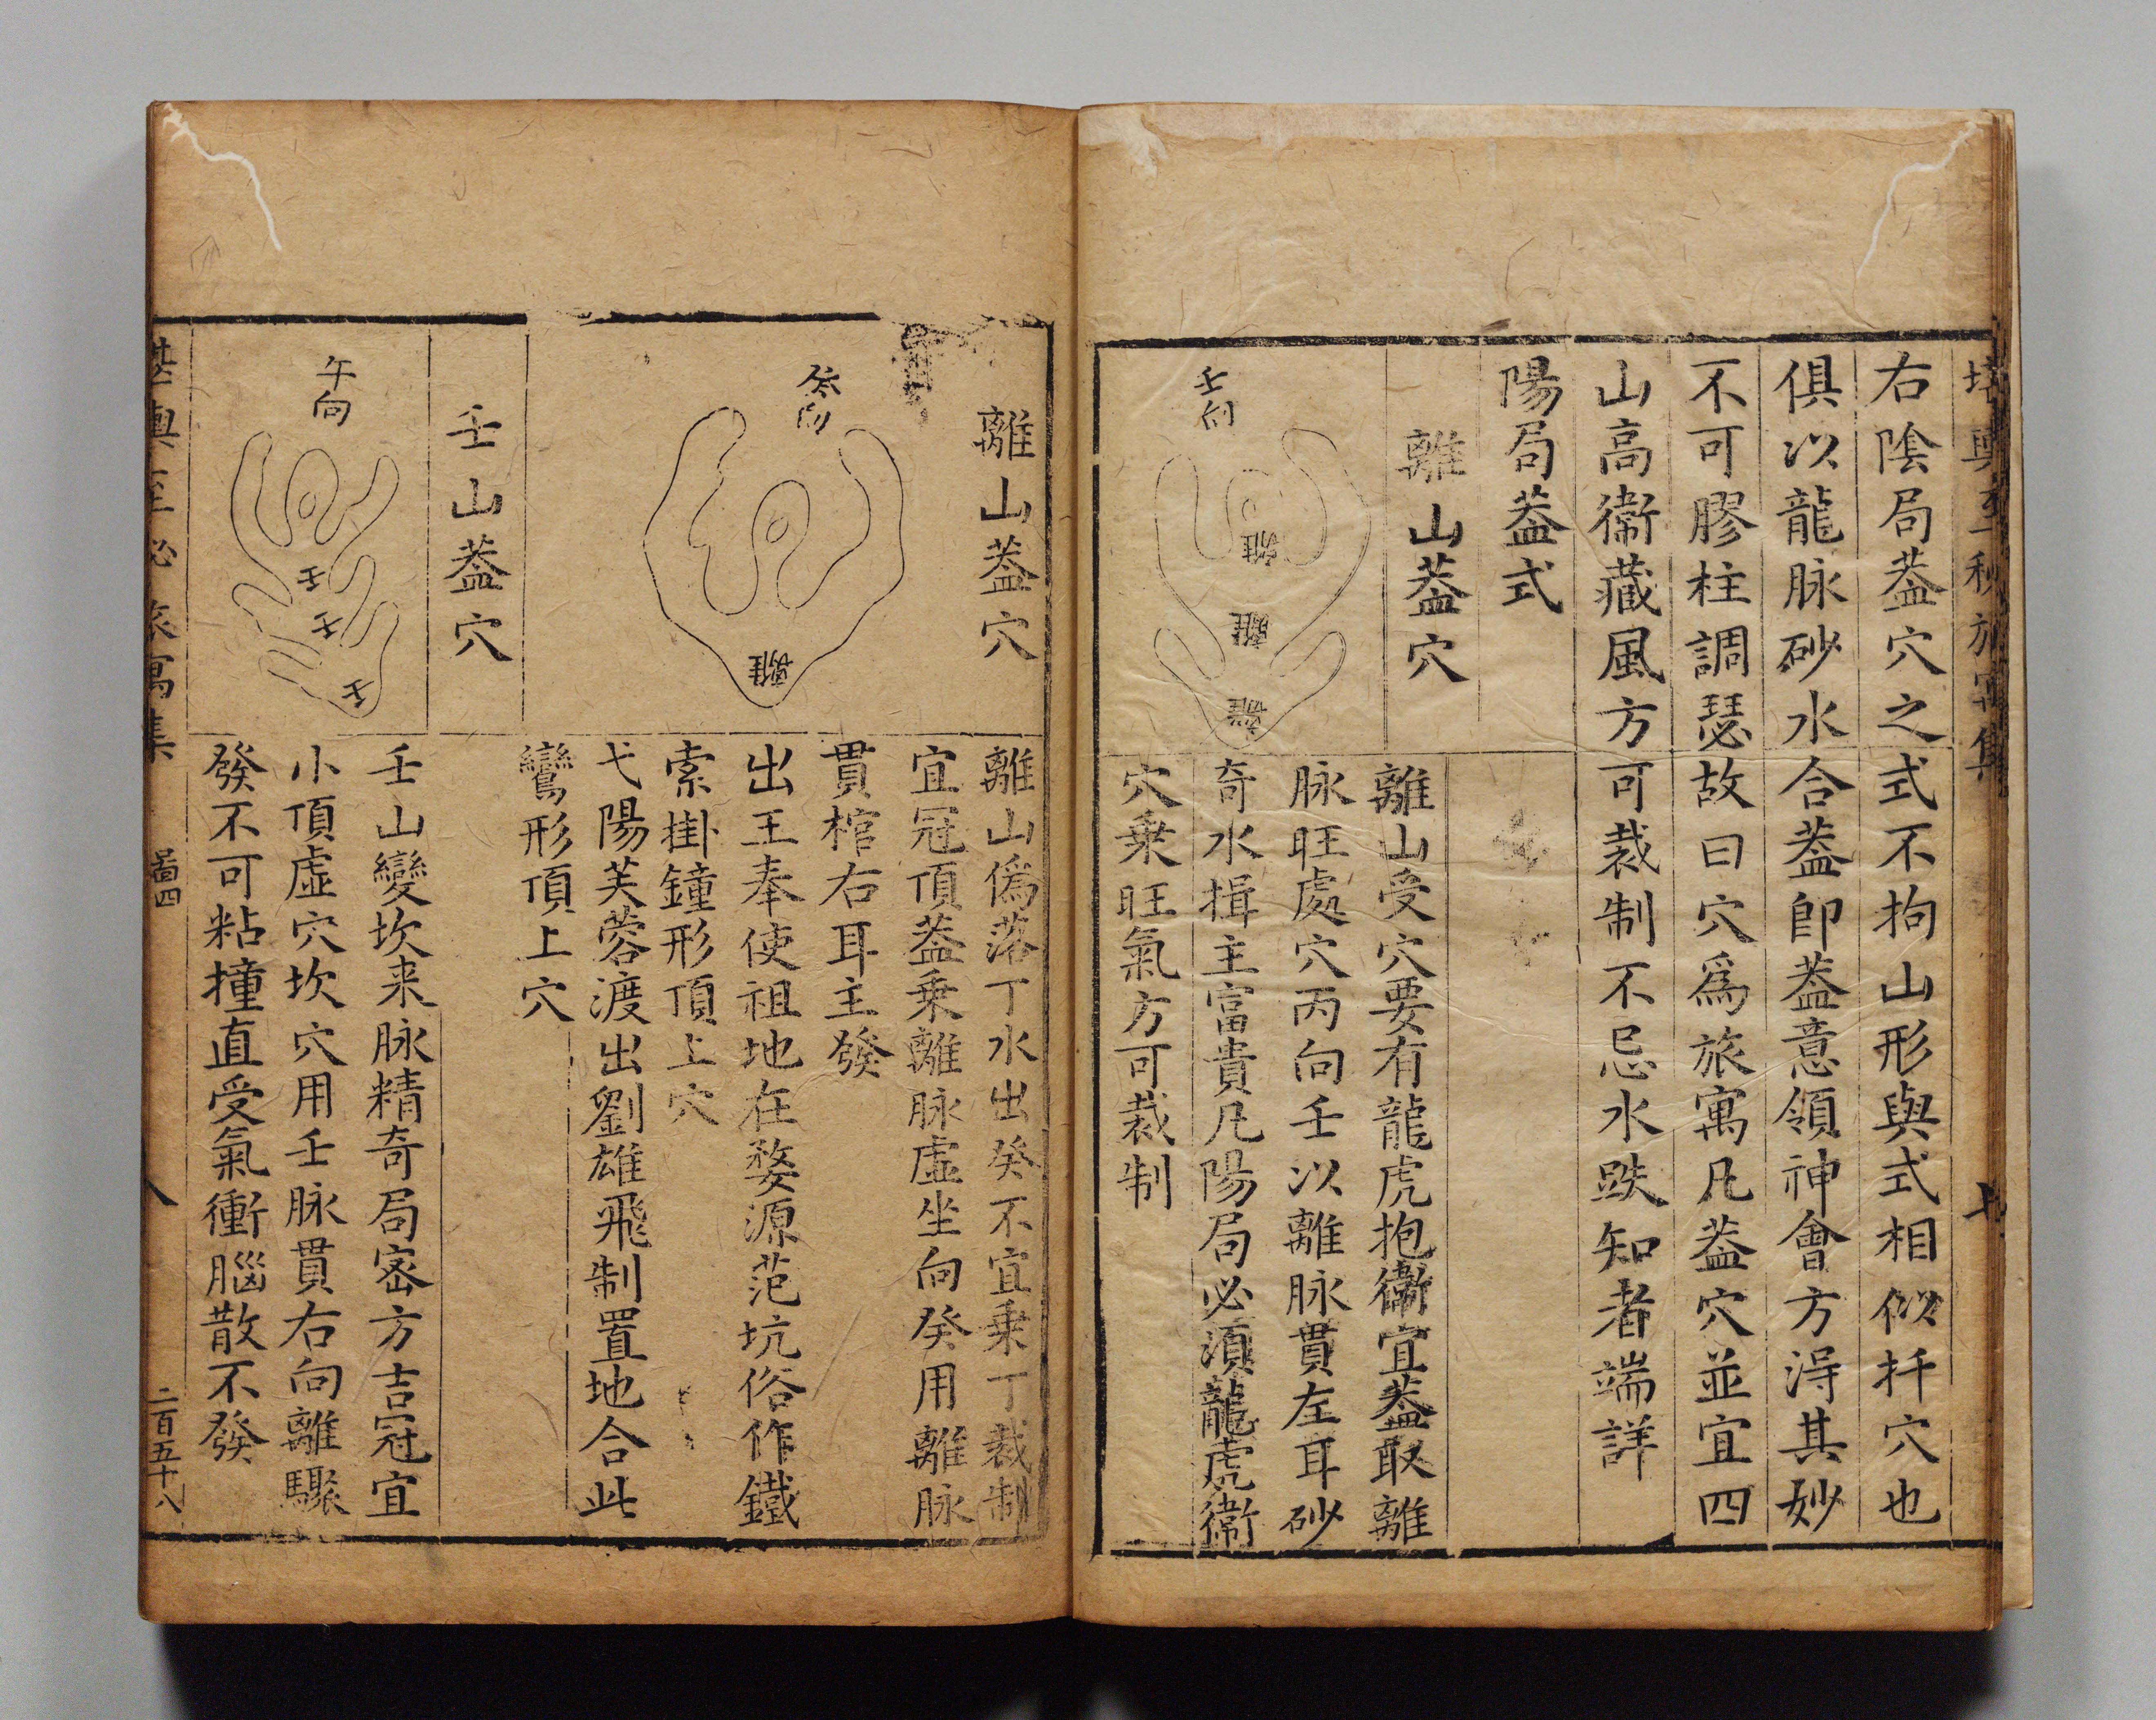 右陰局葢穴之式不拘山形與式相似扦穴也
俱以龍脉砂水合葢即葢意領神會方淂其妙
不可膠柱調瑟故曰穴爲旅寓凡葢穴並宜四
山高衞藏風方可裁制不忌水跌知者端詳
陽局葢式
離山葢穴
壬向
離
離
離
離山受穴要有龍虎抱衞宜葢取離
脉旺處穴丙向壬以離脉貫左耳砂
奇水揖主富貴凡陽局必湏龍虎衞
穴乗旺氣方可裁制
離山葢穴
癸向
離
離山僞落丁水出癸不宜乗丁裁制
宜冠頂葢乗離脉虛坐向癸用離脉
貫棺右耳主發
出王奉使祖地在婺源范坑俗作鐵
索掛鐘形頂上穴
弋陽芙蓉渡出劉雄飛制置地合此
鸞形頂上穴
壬山葢穴
午向
壬
壬
壬
壬山變坎来脉精奇局宻方吉冠宜
小頂虛穴坎穴用壬脉貫右向離驟
發不可粘撞直受氣衝腦散不發
堪輿至秘旅寓集
啚四
八
二百五十八